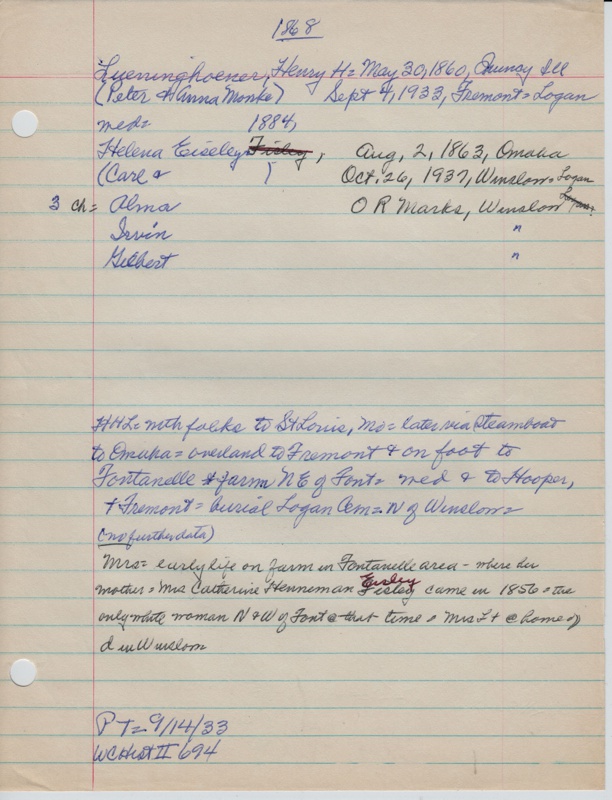 1868
Luenninghoener, Henry H = May 30, 1860, Quincy Ill
(Peter & Anna Monke) Sept 9, 1933, Fremont = Logan
med = 1884,
Helena Eiseley Fisley, Aug, 2, 1863, Omaha
(Carl & ) Oct. 26, 1937, Winslow = Logan
3 ch = Alma O R Marks, Winslow Logan.
Irvin "
Gilbert "
HHL = with folks to St Louis, Mo = later via steamboat
to Omaha = overland to Fremont & on foot to
Fontanelle & farm NE of Font = med & to Hooper,
+ Fremont = burial Logan Cem = N of Winslow =
(no further data)
Mrs = early life on farm in Fontanelle area - where her
mother = Mrs Catherine Henneman Fisley Eisley came in 1856 = the
only white woman N & W of Font @ that time = Mrs L + @ home of
d in Winslow
PT = 9/14/33
WC Hist II 694